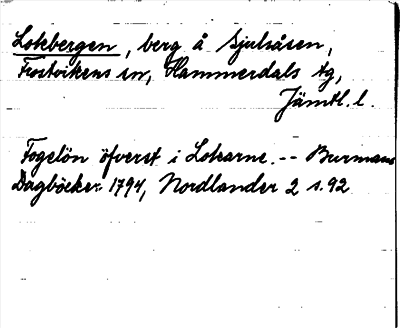 Lokbergen, berg å Sjulsåsen,
Frostvikens sn, Hammerdals tg,
Jämtl. l.
Fogelön öfverst i Lokarne. -- Burmans
Dagböcker 1794, Nordlander 2 s. 92